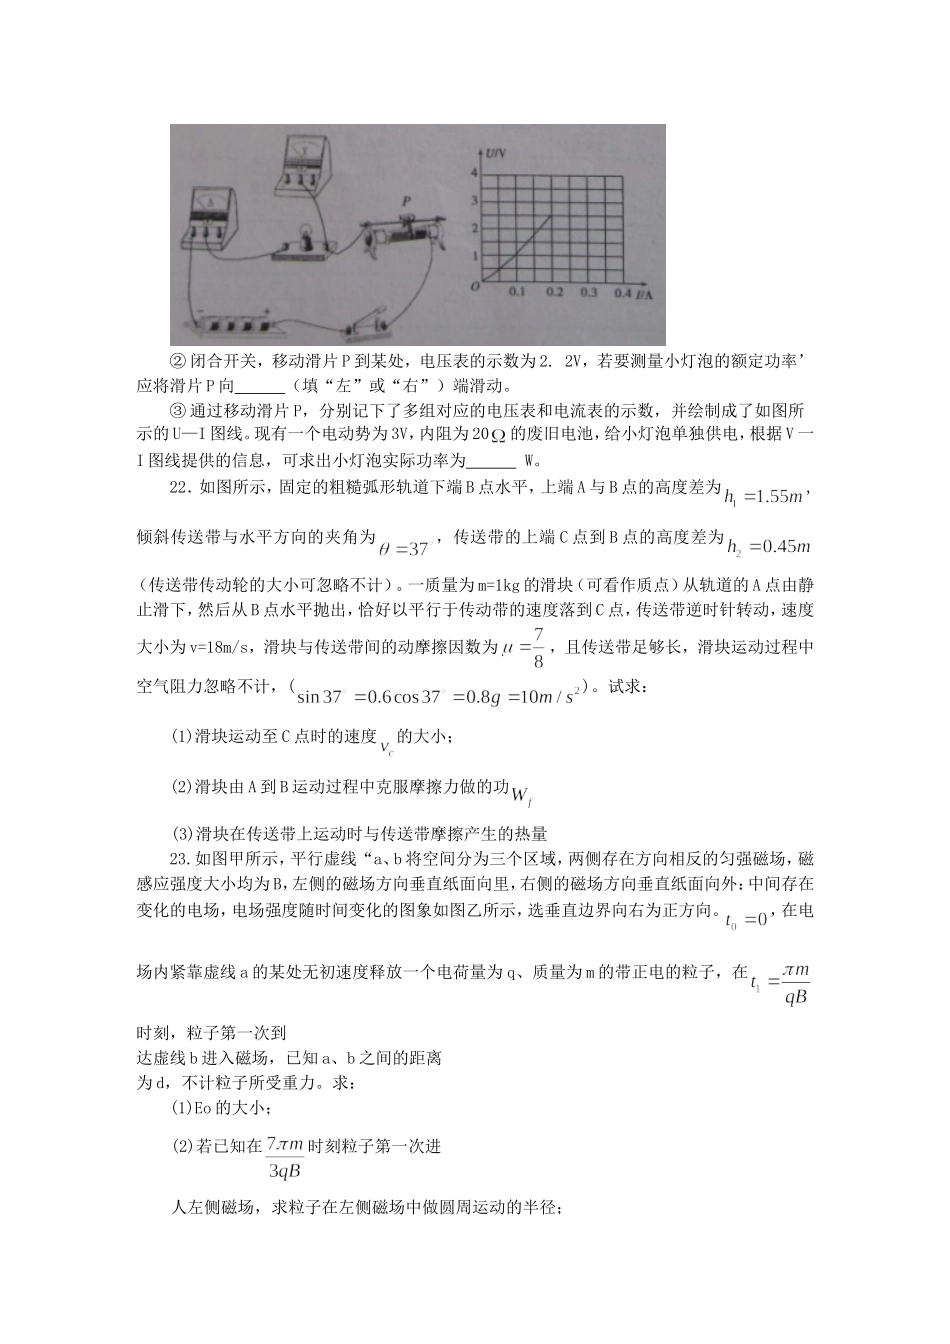 V
A
P
U/V
4
3
2
1
O
0.1 0.2 0.3 0.4 I/A
− +
②闭合开关，移动滑片 P 到某处，电压表的示数为 2． 2V，若要测量小灯泡的额定功率’
应将滑片 P 向______（填“左”或“右”）端滑动。
③通过移动滑片 P，分别记下了多组对应的电压表和电流表的示数，并绘制成了如图所
示的 U—I 图线。现有一个电动势为 3V，内阻为 20Ω 的废旧电池，给小灯泡单独供电，根据 V 一
I 图线提供的信息，可求出小灯泡实际功率为______ W。
22．如图所示，固定的粗糙弧形轨道下端 B 点水平，上端 A 与 B 点的高度差为 h₁=1.55m，
倾斜传送带与水平方向的夹角为 θ=37°，传送带的上端 C 点到 B 点的高度差为 h₂=0.45m
（传送带传动轮的大小可忽略不计）。一质量为 m=1kg 的滑块（可看作质点）从轨道的 A 点由静
止滑下，然后从 B 点水平抛出，恰好以平行于传动带的速度落到 C 点，传送带逆时针转动，速度
大小为 v=18m/s，滑块与传送带间的动摩擦因数为 μ=7/8，且传送带足够长，滑块运动过程中
空气阻力忽略不计，(sin37°=0.6cos37°=0.8g=10m/s²)。试求：
(1)滑块运动至 C 点时的速度 v_c 的大小；
(2)滑块由 A 到 B 运动过程中克服摩擦力做的功 W_f
(3)滑块在传送带上运动时与传送带摩擦产生的热量
23.如图甲所示，平行虚线“a、b 将空间分为三个区域，两侧存在方向相反的匀强磁场，磁
感应强度大小均为 B，左侧的磁场方向垂直纸面向里，右侧的磁场方向垂直纸面向外：中间存在
变化的电场，电场强度随时间变化的图象如图乙所示，选垂直边界向右为正方向。t₀=0，在电
场内紧靠虚线 a 的某处无初速度释放一个电荷量为 q、质量为 m 的带正电的粒子，在 t₁=πm/qB
时刻，粒子第一次到
达虚线 b 进入磁场，已知 a、b 之间的距离
为 d，不计粒子所受重力。求：
(1)Eo 的大小；
(2)若已知在 7πm/3qB 时刻粒子第一次进
人左侧磁场，求粒子在左侧磁场中做圆周运动的半径；